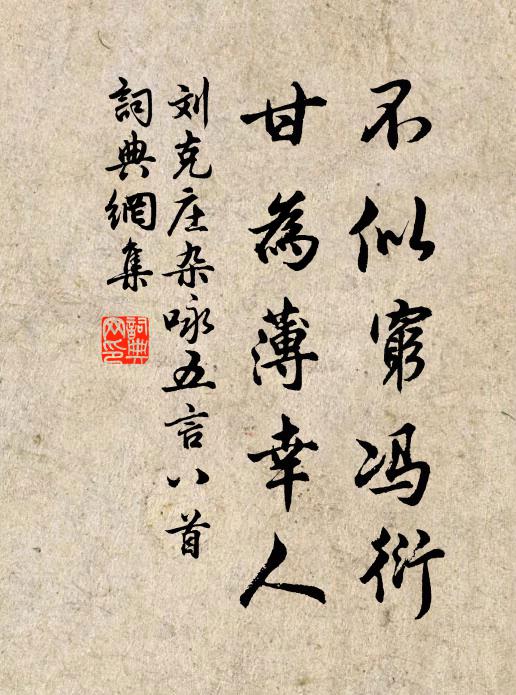 不似窮冯衍
甘為薄幸人
刘克庄杂咏五言八首
詞典網集
詞典
网印